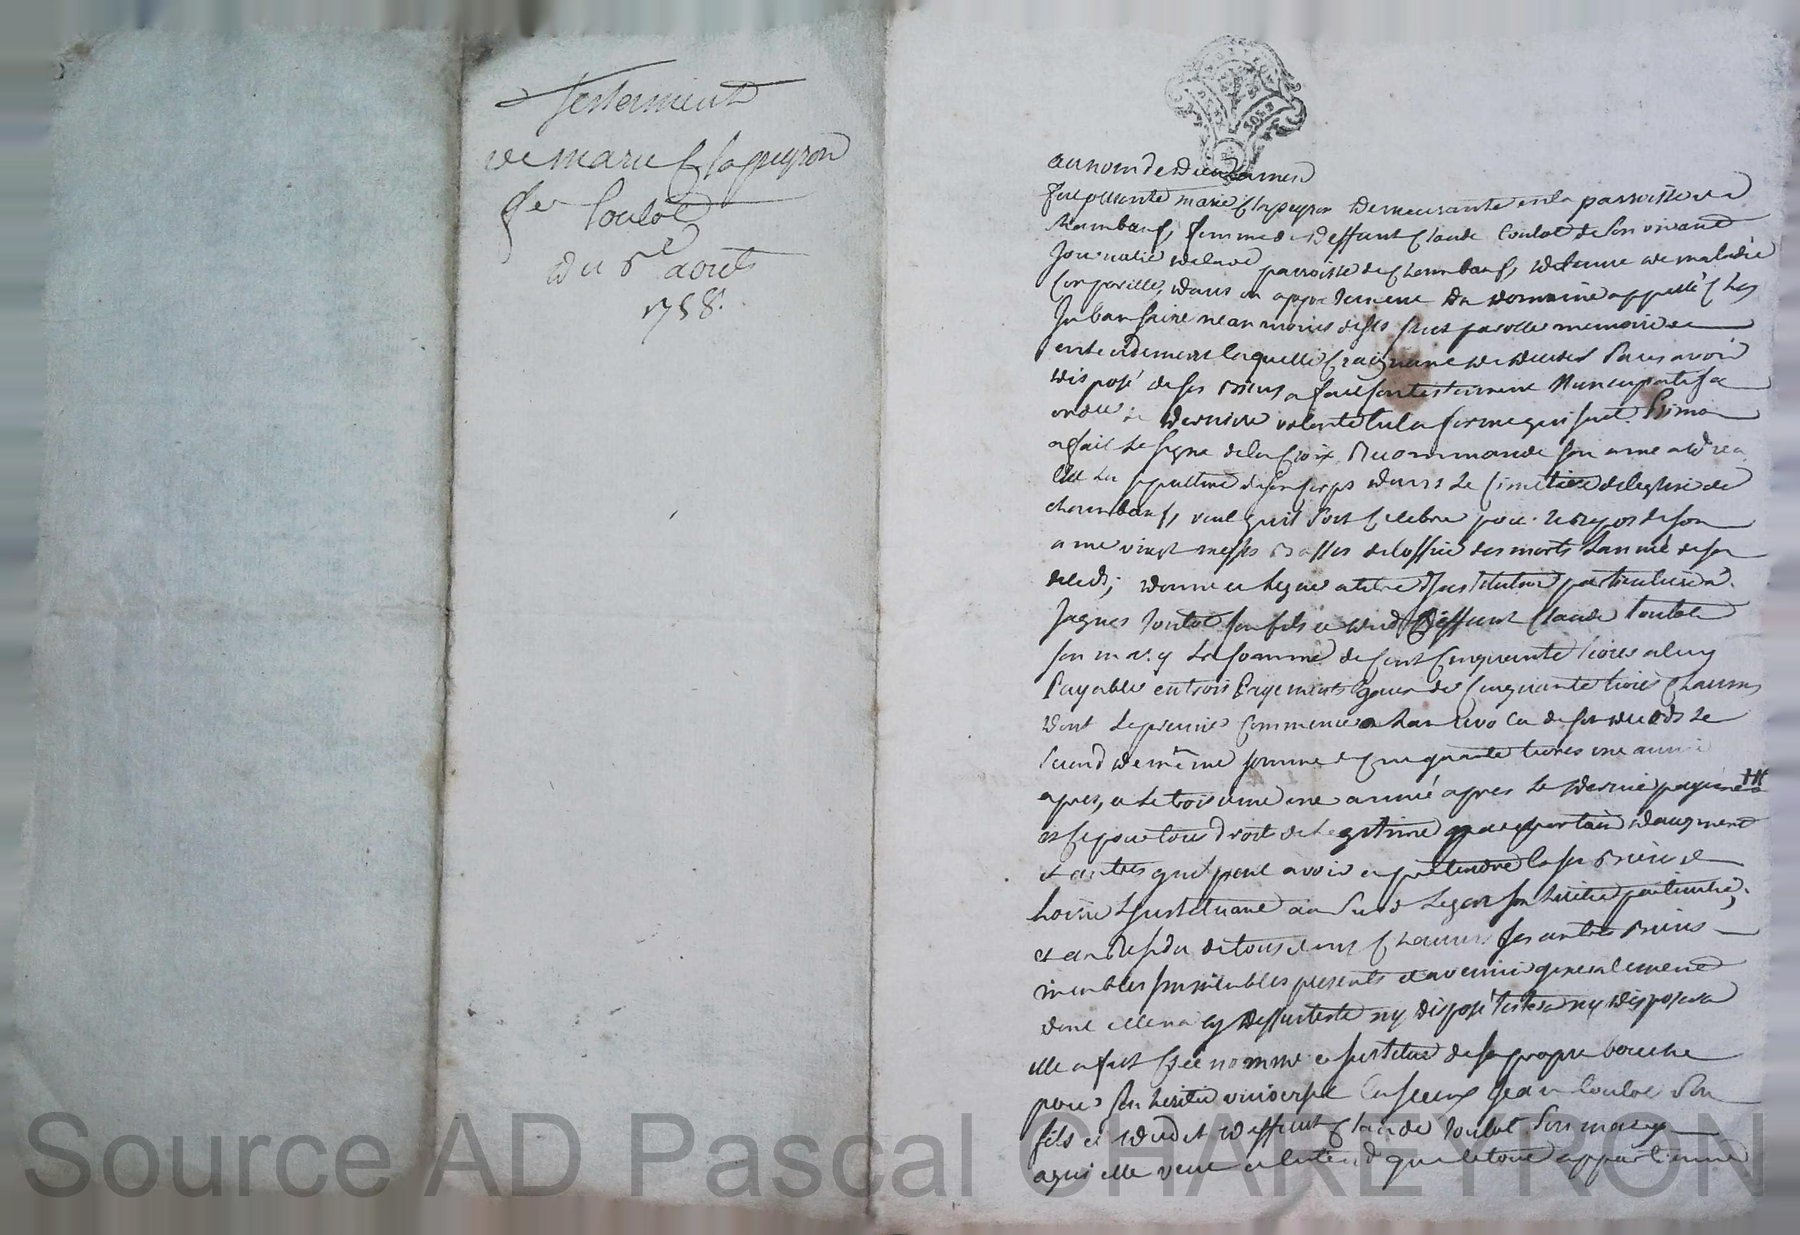 Testament
de marie Clapeyron
fe Coulot
du 5e aout
1758.
au nom de dieu amen
fut presente marie Clapeyron demeurante en la parroisse de
Chambeuf, femme de deffunt Claude Coulot de son vivant
parroisse de Chambeuf, detenue de maladie
Corporelle, dans un appartement du domaine appellé Chez
neanmoins de ses sens parolle memoire et
entendement laquelle Craignant de deceder sans avoir
disposé de ses biens a fait son testament nuncupatif et
ordre de derniere volonté en la forme qui suit. Primo
a fait le signe de la Croix Recommandé son ame a dieu
Elu la sepulture de son Corps dans le Cimetiere de leglise de
chambeuf, veut quil soit Celebré pour le Repos de son
ame vingt messes Basses de loffice des morts lannée de son
deceds; donne et legue a titre dinstitution particuliere a
Jaques Coulot son fils et dudit deffunt Claude Coulot
son mary la somme de Cent Cinquante livres a luy
Payable en trois Payements Egaux de Cinquante livres Chacun
dont le premier Commencera de son deceds le
second de même somme de Cinquante livres une année
apres, et le troisieme une année apres le dernier payement
et Ce pour tous droits de legitime daugment
et autres quil peut avoir et pretendre sur ses Biens et
hoirie Linstituant au susd legat son heritier particulier;
et au Residu de tous et uns Chacuns ses autres Biens
meubles immeubles presents et avenir generalement
dont elle na cy dessus testé ny disposé testera ny disposera
elle a fait Créé nommé et institué de sa propre bouche
pour son heritier universel Jean Coulot son
fils et dudit deffunt Claude Coulot son mary
a qui elle veut et entend que le tout appartienne
Source AD Pascal CHAREYRON